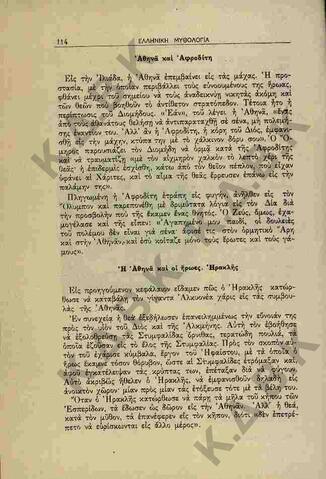 114
ΕΛΛΗΝΙΚΗ ΜΥΘΟΛΟΓΙΑ
Ἀθηνᾶ καὶ Ἀφροδίτη
Εἰς τὴν Ἰλιάδα, ἡ Ἀθηνᾶ ἐπεμβαίνει εἰς τὰς μάχας. Ἡ προ-
στασία, μὲ τὴν ὁποίαν περιβάλλει τοὺς εὐνοουμένους της ἥρωας,
φθάνει μέχρι τοῦ σημείου νὰ τοὺς ἀναδεικνύῃ νικητὰς ἀκόμη καὶ
τῶν θεῶν ποὺ βοηθοῦν τὸ ἀντίθετον στρατόπεδον. Τέτοια ἦτο ἡ
περίπτωσις τοῦ Διομήδους. «Ἐὰν, τοῦ λέγει ἡ Ἀθηνᾶ, «ἕνας
ἀπὸ τοὺς ἀθανάτους θελήσῃ νὰ ἀντιπαραταχθῇ σὲ σένα, μὴ πολεμή-
σῃς ἐναντίον του. Ἀλλ' ἂν ἡ Ἀφροδίτη, ἡ κόρη τοῦ Διός, ἐμφανι-
σθῇ εἰς τὴν μάχην, κτύπα την μὲ τὸ χάλκινον δόρυ σου». Ὁ Ὅ-
μηρος παρουσιάζει τὸν Διομήδη νὰ ὁρμᾷ κατὰ τῆς Ἀφροδίτης
καὶ νὰ τραυματίζῃ «μὲ τὸν αἰχμηρὸν χαλκὸν τὸ λεπτὸ χέρι τῆς
θεᾶς· ἡ ἐπιδερμὶς ἐσχίσθη, κάτω ἀπὸ τὸν θεῖον πέπλον, ποὺ εἶχαν
ὑφάνει αἱ Χάριτες, καὶ τὸ αἷμα τῆς θεᾶς ἔρρευσεν ἐπάνω εἰς τὴν
παλάμην της».
Πληγωμένη ἡ Ἀφροδίτη ἐτράπη εἰς φυγήν, ἀνῆλθεν εἰς τὸν
Ὄλυμπον καὶ παρεπονέθη μὲ δριμύτατα λόγια εἰς τὸν Δία διὰ
τὴν προσβολὴν ποὺ τῆς ἔκαμεν ἕνας θνητός. Ὁ Ζεύς, ὅμως, ἐχα-
μογέλασε καὶ τῆς εἶπεν: «Ἀγαπημένο μου παιδί, οἱ δουλειὲς
τοῦ πολέμου δὲν εἶναι γιὰ σένα· ἄφισέ τις στὸν ὁρμητικὸ Ἄρη
καὶ στὴν Ἀθηνᾶν, καὶ ἐσὺ κοίταξε μόνο τοὺς ἔρωτας καὶ τοὺς γά-
μους».
Ἡ Ἀθηνᾶ καὶ οἱ ἥρωες. Ἡρακλῆς
Εἰς προηγούμενον κεφάλαιον εἴδαμεν πῶς ὁ Ἡρακλῆς κατώρ-
θωσε νὰ καταβάλῃ τὸν γίγαντα Ἀλκυονέα χάρις εἰς τὰς συμβου-
λὰς τῆς Ἀθηνᾶς.
Ἐν συνεχείᾳ ἡ θεὰ ἐξεδήλωσεν ἐπανειλημμένως τὴν εὔνοιάν της
πρὸς τὸν υἱὸν τοῦ Διὸς καὶ τῆς Ἀλκμήνης. Αὐτὴ τὸν ἐβοήθησε
νὰ ἐξολοθρεύσῃ τὰς Στυμφαλίδας ὄρνιθας, τερατώδη πουλιά, τὰ
ὁποῖα ἐζοῦσαν εἰς τὸ ἕλος τῆς Στυμφαλίας. Πρὸς τὸν σκοπὸν αὐ-
τὸν τοῦ ἐχάρισε κύμβαλα, ἔργον τοῦ Ἡφαίστου, μὲ τὰ ὁποῖα ὁ
ἥρως ἔκαμνε τόσον θόρυβον, ὥστε αἱ Στυμφαλίδες ἐτρόμαξαν καί,
ἀφοῦ ἐγκατέλειψαν τὰς κρύπτας των, ἐπέταξαν διὰ νὰ φύγουν.
Αὐτὸ ἀκριβῶς ἤθελεν ὁ Ἡρακλῆς, νὰ ἐμφανισθοῦν δηλαδὴ εἰς
ἀνοικτὸν χῶρον· μίαν πρὸς μίαν τὰς ἐτόξευσε τότε μὲ τὰ βέλη του.
Ὅταν ὁ Ἡρακλῆς κατώρθωσε νὰ πάρῃ τὰ μῆλα τοῦ κήπου τῶν
Ἑσπερίδων, τὰ ἔδωσεν ὡς δῶρον εἰς τὴν Ἀθηνᾶν. Ἀλλ' ἡ θεά,
κατὰ τὸν μῦθον, τὰ ἐπανέφερεν εἰς τὸν κῆπον, διότι «δὲν ἐπετρέ-
πετο νὰ εὑρίσκωνται εἰς ἄλλο μέρος».